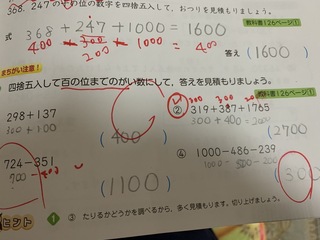 368、247の
の数字を四捨五入して、おつりを見積もりましょう。
教科書126ページ①
式 368 + 247 + 1000 = 1600
400 300 1000 = 400
200
答え (1600)
まちがい注意!
四捨五入して百の位までのがい数にして、答えを見積もりましょう。
教科書126ページ①
298+137
300+100
(400)
② 319+387+1765
300+400=
(2700
724-351
700 -400
(1100)
④ 1000-486-239
1000 - 500 - 200
(300
ヒント
1 ③ たりるかどうかを調べるから、多く見積もります。切り上げましょう。